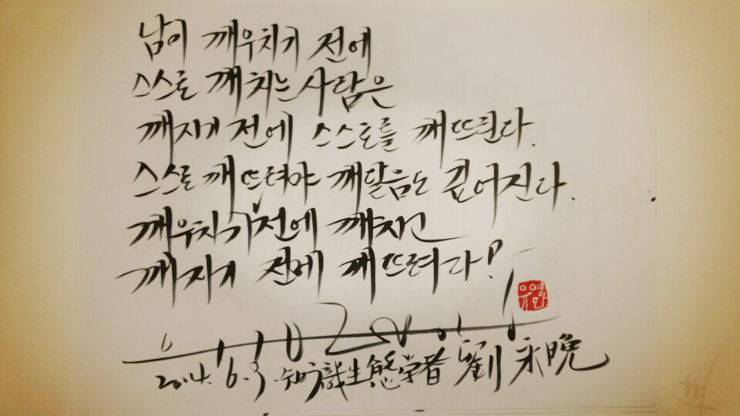 남이 깨우치기 전에
스스로 깨치는 사람은
깨지기 전에 스스로를 깨뜨린다.
스스로 깨뜨려야 깨달음도 깊어진다.
깨우치기 전에 깨지고
깨지기 전에 깨뜨려라!
유영만
2014. 6. 3. 知識生態學者 劉永晩